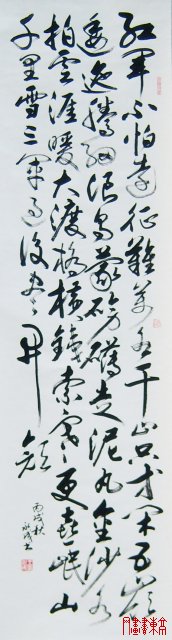 红軍不怕遠征難萬水千山只等闲五嶺
逶迤騰細浪烏蒙磅礴走泥丸金沙水
拍雲崖暖大渡橋橫鐵索寒更喜岷山
千里雪三軍過後尽開顏
丙戌秋